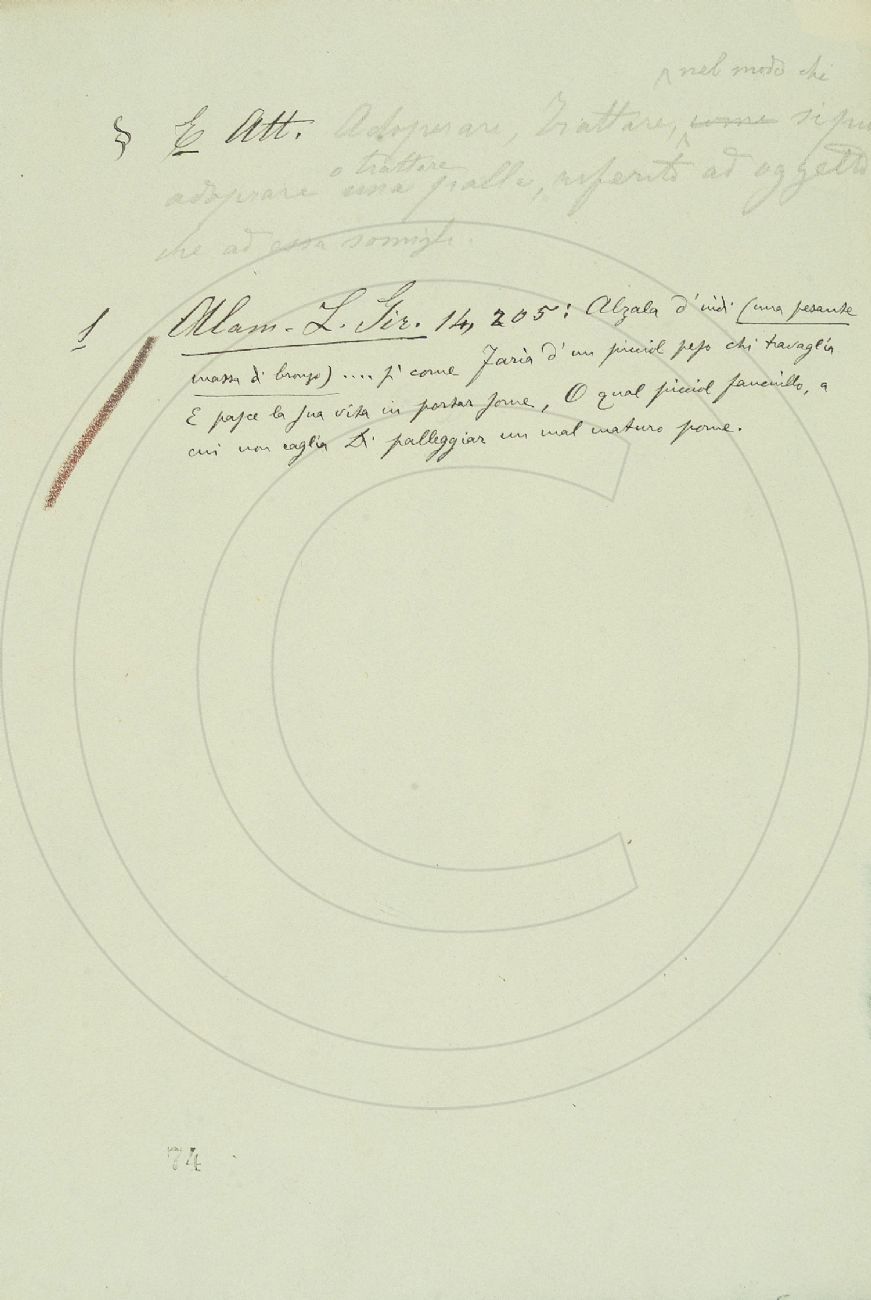 nel modo che
§ E Att. Adoperare, Trattare, come si può
o trattare
adoprare una palla, riferito ad oggetto
che ad essa somigli.
1 Alam. L. Gir. 14, 205: Alzala d'indi (una pesante
massa di bronzo) .... sì come Faria d'un picciol peso chi travaglia
E pasce la sua vita in portar some, O qual picciol fanciullo, a
cui non caglia Di palleggiar un mal maturo pome.
74